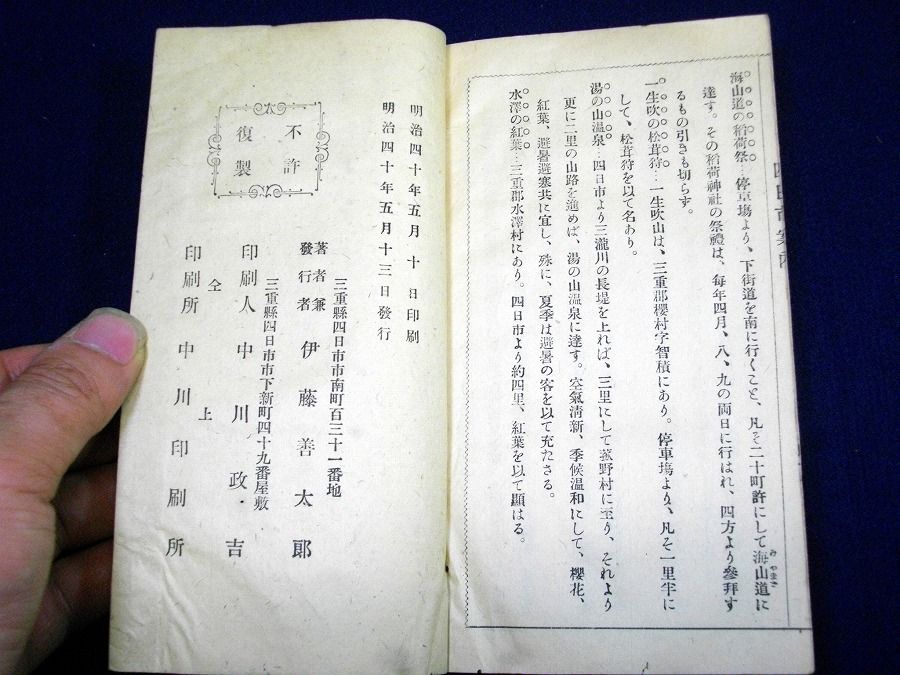 海山道の稻荷祭…停車塲より、下街道を南に行くこと、凡そ二十町許にして海山道に
みやまど
達す。その稻荷神社の祭禮は、每年四月、八、九の両日に行はれ、四方より參拜す
るもの引きも切らず。
一生吹の松茸狩…一生吹山は、三重郡櫻村字智積にあり。停車塲より、凡そ一里半に
して、松茸狩を以て名あり。
湯の山温泉…四日市より三瀧川の長堤を上れば、三里にして菰野村に至り、それより
更に二里の山路を進めば、湯の山温泉に達す。空氣清新、季候温和にして、櫻花、
紅葉、避暑避寒共に宜し、殊に、夏季は避暑の客を以て充たさる。
水澤の紅葉…三重郡水澤村にあり。四日市より約四里、紅葉を以て顯はる。
明治四十年五月十日印刷
明治四十年五月十三日發行
不許
復製
三重縣四日市市南町百三十一番地
著者兼
發行者 伊藤善太郎
三重縣四日市市下新町四十九番屋敷
印刷人 中川政吉
仝 上
印刷所 中川印刷所